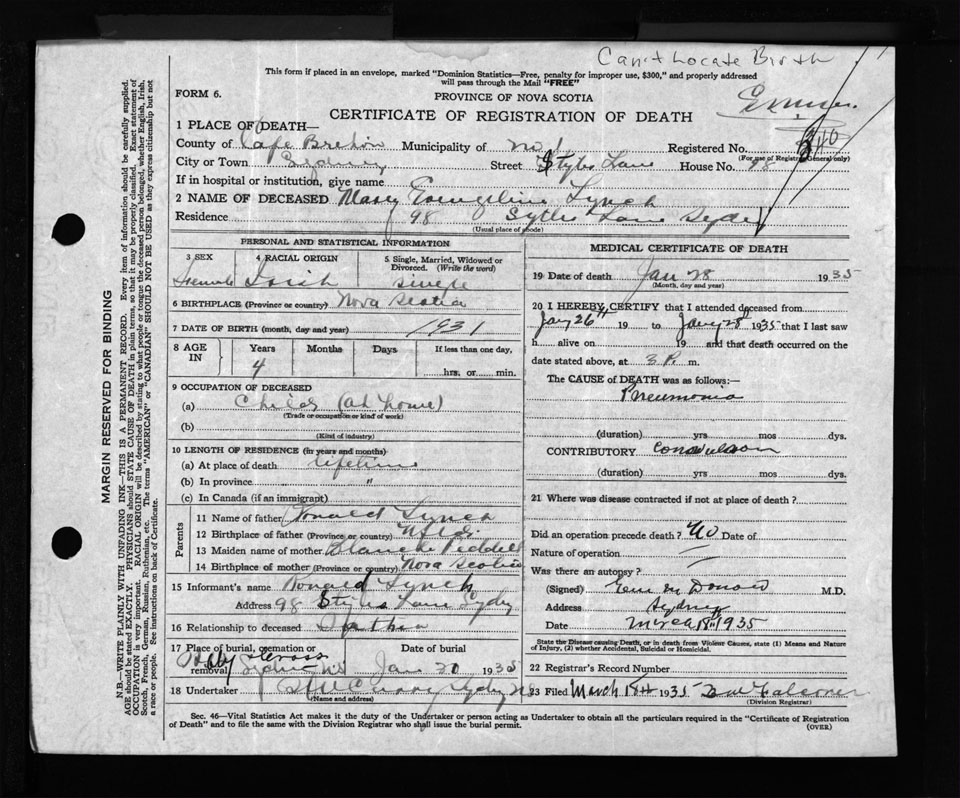 Can't Locate Birth
This form if placed in an envelope, marked "Dominion Statistics—Free, penalty for improper use, $300," and properly addressed
will pass through the Mail "FREE"
FORM 6.
PROVINCE OF NOVA SCOTIA
CERTIFICATE OF REGISTRATION OF DEATH
1 PLACE OF DEATH—
County of Cape Breton Municipality of No 1 Registered No.
(For use of Registrar General only)
City or Town Sydney Street Styles Lane House No. 98
If in hospital or institution, give name
2 NAME OF DECEASED Mary Evengeline Lynch
Residence 98 Sytles Lane Syde
(Usual place of abode)
PERSONAL AND STATISTICAL INFORMATION
3 SEX 4 RACIAL ORIGIN 5 Single, Married, Widowed or Divorced. (Write the word)
Female Irish single
6 BIRTHPLACE (Province or country) Nova Scotia
7 DATE OF BIRTH (month, day and year) 1931
8 AGE IN Years Months Days If less than one day,
4 hrs. or min.
9 OCCUPATION OF DECEASED
(a) Child (at home)
(Trade or occupation or kind of work)
(b)
(Kind of industry)
10 LENGTH OF RESIDENCE (in years and months)
(a) At place of death lifetime
(b) In province "
(c) In Canada (if an immigrant)
Parents
11 Name of father Ronald Lynch
12 Birthplace of father (Province or country) Nfld
13 Maiden name of mother Blanche Peddell
14 Birthplace of mother (Province or country) Nova Scotia
15 Informant's name Ronald Lynch
Address 98 Styles Lane Sydny
16 Relationship to deceased Father
17 Place of burial, cremation or removal Date of burial
Holy Cross
Sydney NS Jan 30 1935
18 Undertaker
(Name and address)
MEDICAL CERTIFICATE OF DEATH
19 Date of death Jan 28 1935
(Month, day and year)
20 I HEREBY CERTIFY that I attended deceased from
Jany 26" 19 to Jany 28" 1935 that I last saw
h alive on 19 and that death occurred on the
date stated above, at 3 P. m.
The CAUSE of DEATH was as follows:—
Pneumonia
(duration) yrs mos dys.
CONTRIBUTORY Convulsion
(duration) yrs mos dys.
21 Where was disease contracted if not at place of death?
Did an operation precede death? No Date of
Nature of operation
Was there an autopsy?
(Signed) M.D.
Address Sydney
Date March 18th 1935
State the Disease causing Death, or in death from Violent Causes, state (1) Means and
Nature of Injury, (2) whether Accidental, Suicidal or Homicidal.
22 Registrar's Record Number
23 Filed March 18th 1935
(Division Registrar)
Sec. 46—Vital Statistics Act makes it the duty of the Undertaker or person acting as Undertaker to obtain all the particulars required in the "Certificate of Registration
of Death" and to file the same with the Division Registrar who shall issue the burial permit.
(OVER)
MARGIN RESERVED FOR BINDING
N.B.—WRITE PLAINLY WITH UNFADING INK—THIS IS A PERMANENT RECORD. Every item of information should be carefully supplied.
AGE should be stated EXACTLY. PHYSICIANS should STATE CAUSE OF DEATH in plain terms, so that it may be properly classified. Exact statement of
OCCUPATION is very important. RACIAL ORIGIN will be described by stating to what people or tongue the deceased person belonged, whether English, Irish,
Scotch, French, German, Russian, Ruthenian, etc. The terms "AMERICAN" or "CANADIAN" SHOULD NOT BE USED as they express citizenship but not
a race or people. See instructions on back of Certificate.